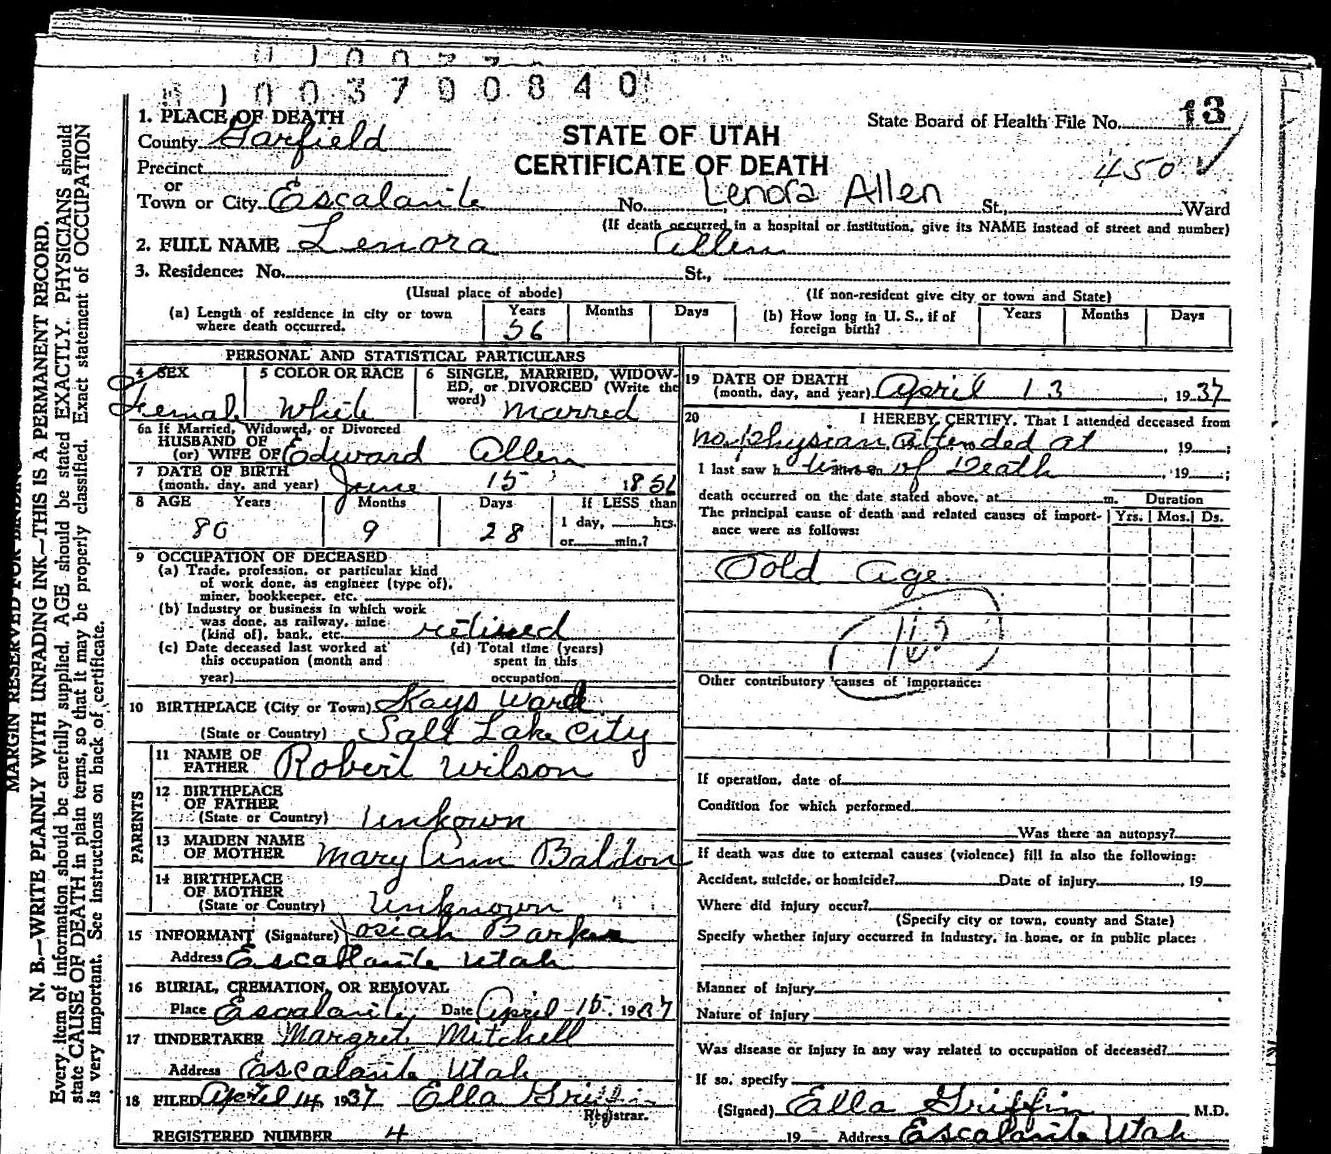 1003700840
1. PLACE OF DEATH
County Garfield
Precinct
or
Town or City Escalante
STATE OF UTAH
CERTIFICATE OF DEATH
State Board of Health File No. 13
450
No. Lenora Allen St., Ward
(If death occurred in a hospital or institution, give its NAME instead of street and number)
2. FULL NAME Lenora Allen
3. Residence: No. St.,
(Usual place of abode) (If non-resident give city or town and State)
(a) Length of residence in city or town where death occurred. Years 56 Months Days
(b) How long in U. S., if of foreign birth? Years Months Days
PERSONAL AND STATISTICAL PARTICULARS
4 SEX Femal
5 COLOR OR RACE White
6 SINGLE, MARRIED, WIDOWED, or DIVORCED (Write the word) Marred
6a If Married, Widowed, or Divorced
HUSBAND OF
(or) WIFE OF Edward Allen
7 DATE OF BIRTH
(month, day, and year) June 15 1856
8 AGE Years 80 Months 9 Days 28 If LESS than
1 day, hrs.
or min.?
9 OCCUPATION OF DECEASED
(a) Trade, profession, or particular kind
of work done, as engineer (type of),
miner, bookkeeper, etc.
(b) Industry or business in which work
was done, as railway, mine
(kind of), bank, etc. retired
(c) Date deceased last worked at
this occupation (month and
year)
(d) Total time (years)
spent in this
occupation
10 BIRTHPLACE (City or Town) Kays Ward
(State or Country) Salt Lake City
PARENTS
11 NAME OF
FATHER Robert Wilson
12 BIRTHPLACE
OF FATHER
(State or Country) Unkown
13 MAIDEN NAME
OF MOTHER Mary Ann Baldon
14 BIRTHPLACE
OF MOTHER
(State or Country) Unknown
15 INFORMANT (Signature) Josiah Barker
Address Escallante Utah
16 BURIAL, CREMATION, OR REMOVAL
Place Escalante Date April 15, 1937
17 UNDERTAKER Margret Mitchell
Address Escalante Utah
18 FILED April 14 1937 Ella Griffin
Registrar.
REGISTERED NUMBER 4
19 DATE OF DEATH
(month, day, and year) April 13, 1937
20 I HEREBY CERTIFY, That I attended deceased from
no physian attended at, 19 ;
I last saw h time of Death, 19 ;
death occurred on the date stated above, at m. Duration
The principal cause of death and related causes of importance were as follows: Yrs. Mos. Ds.
Oold age
Other contributory causes of importance:
If operation, date of
Condition for which performed
Was there an autopsy?
If death was due to external causes (violence) fill in also the following:
Accident, suicide, or homicide? Date of injury , 19
Where did injury occur?
(Specify city or town, county and State)
Specify whether injury occurred in industry, in home, or in public place:
Manner of injury
Nature of injury
Was disease or injury in any way related to occupation of deceased?
If so, specify
(Signed) Ella Griffin M.D.
19 Address Escalante Utah
MARGIN RESERVED FOR BINDING
N. B.—WRITE PLAINLY WITH UNFADING INK—THIS IS A PERMANENT RECORD.
Every item of information should be carefully supplied. AGE should be stated EXACTLY. PHYSICIANS should
state CAUSE OF DEATH in plain terms, so that it may be properly classified. Exact statement of OCCUPATION
is very important. See instructions on back of certificate.